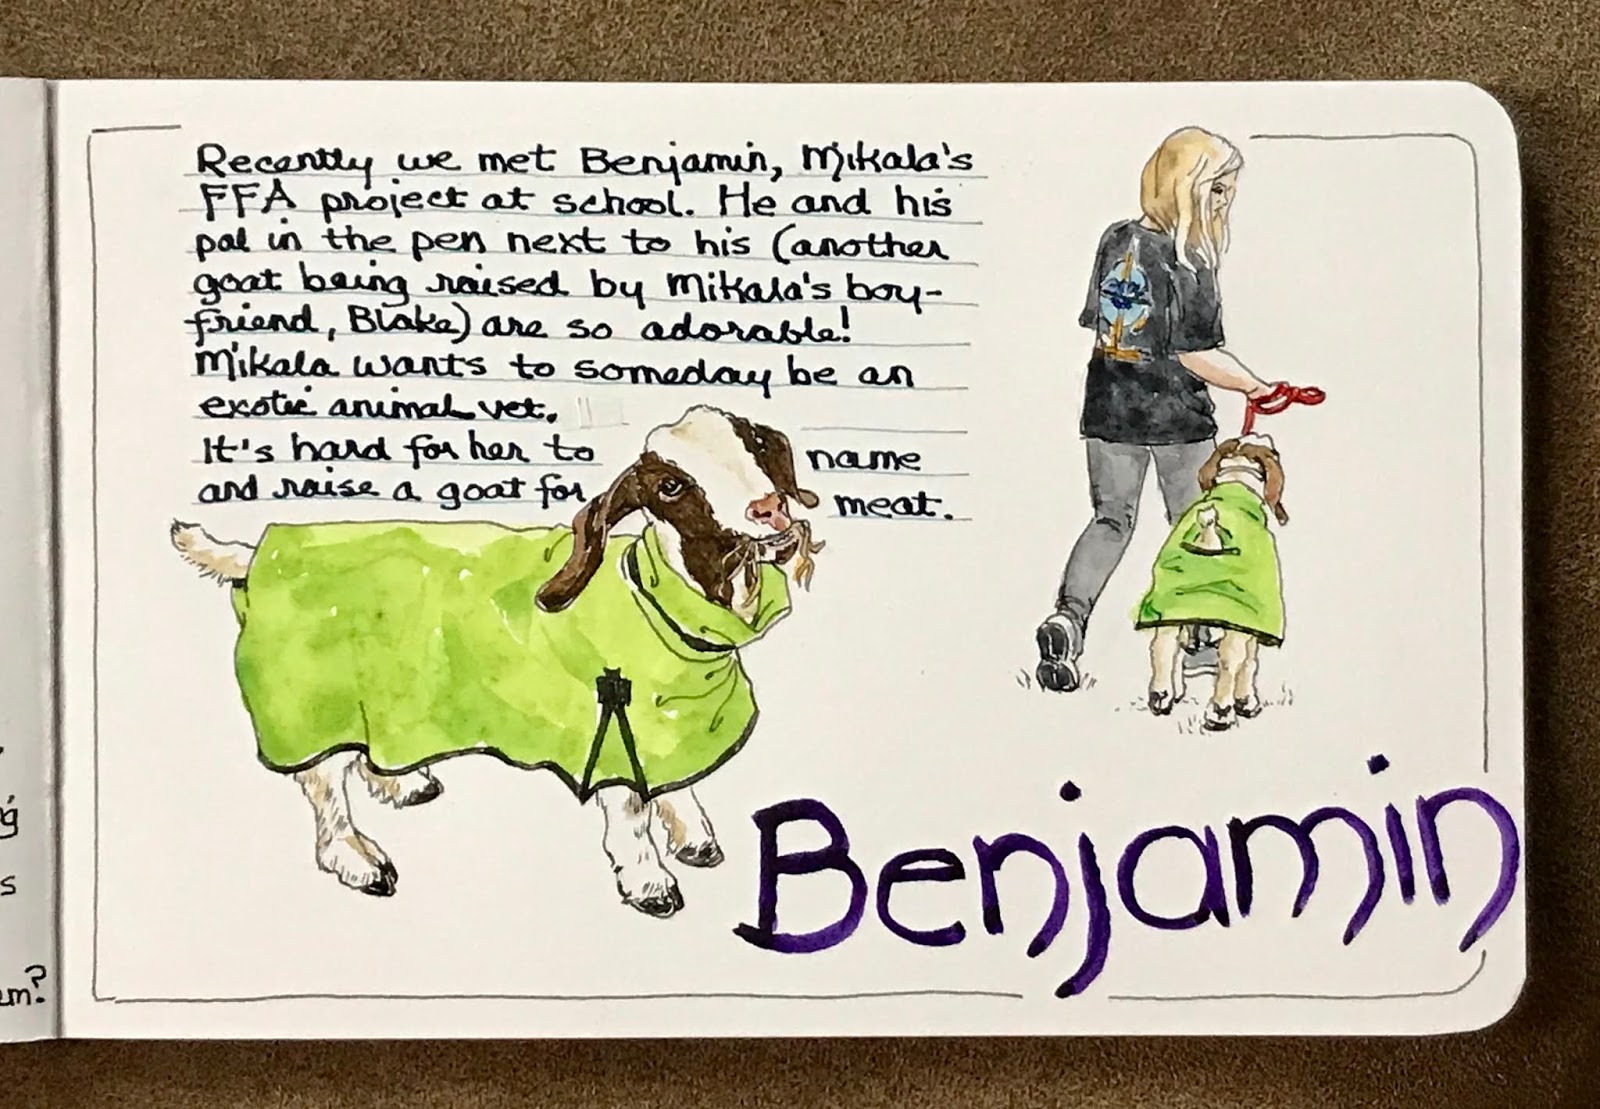 Recently we met Benjamin, Mikala's
FFA project at school. He and his
pal in the pen next to his (another
goat being raised by Mikala's boy-
friend, Blake) are so adorable!
Mikala wants to someday be an
exotic animal vet.
It's hard for her to name
and raise a goat for meat.
Benjamin
g
s
em?